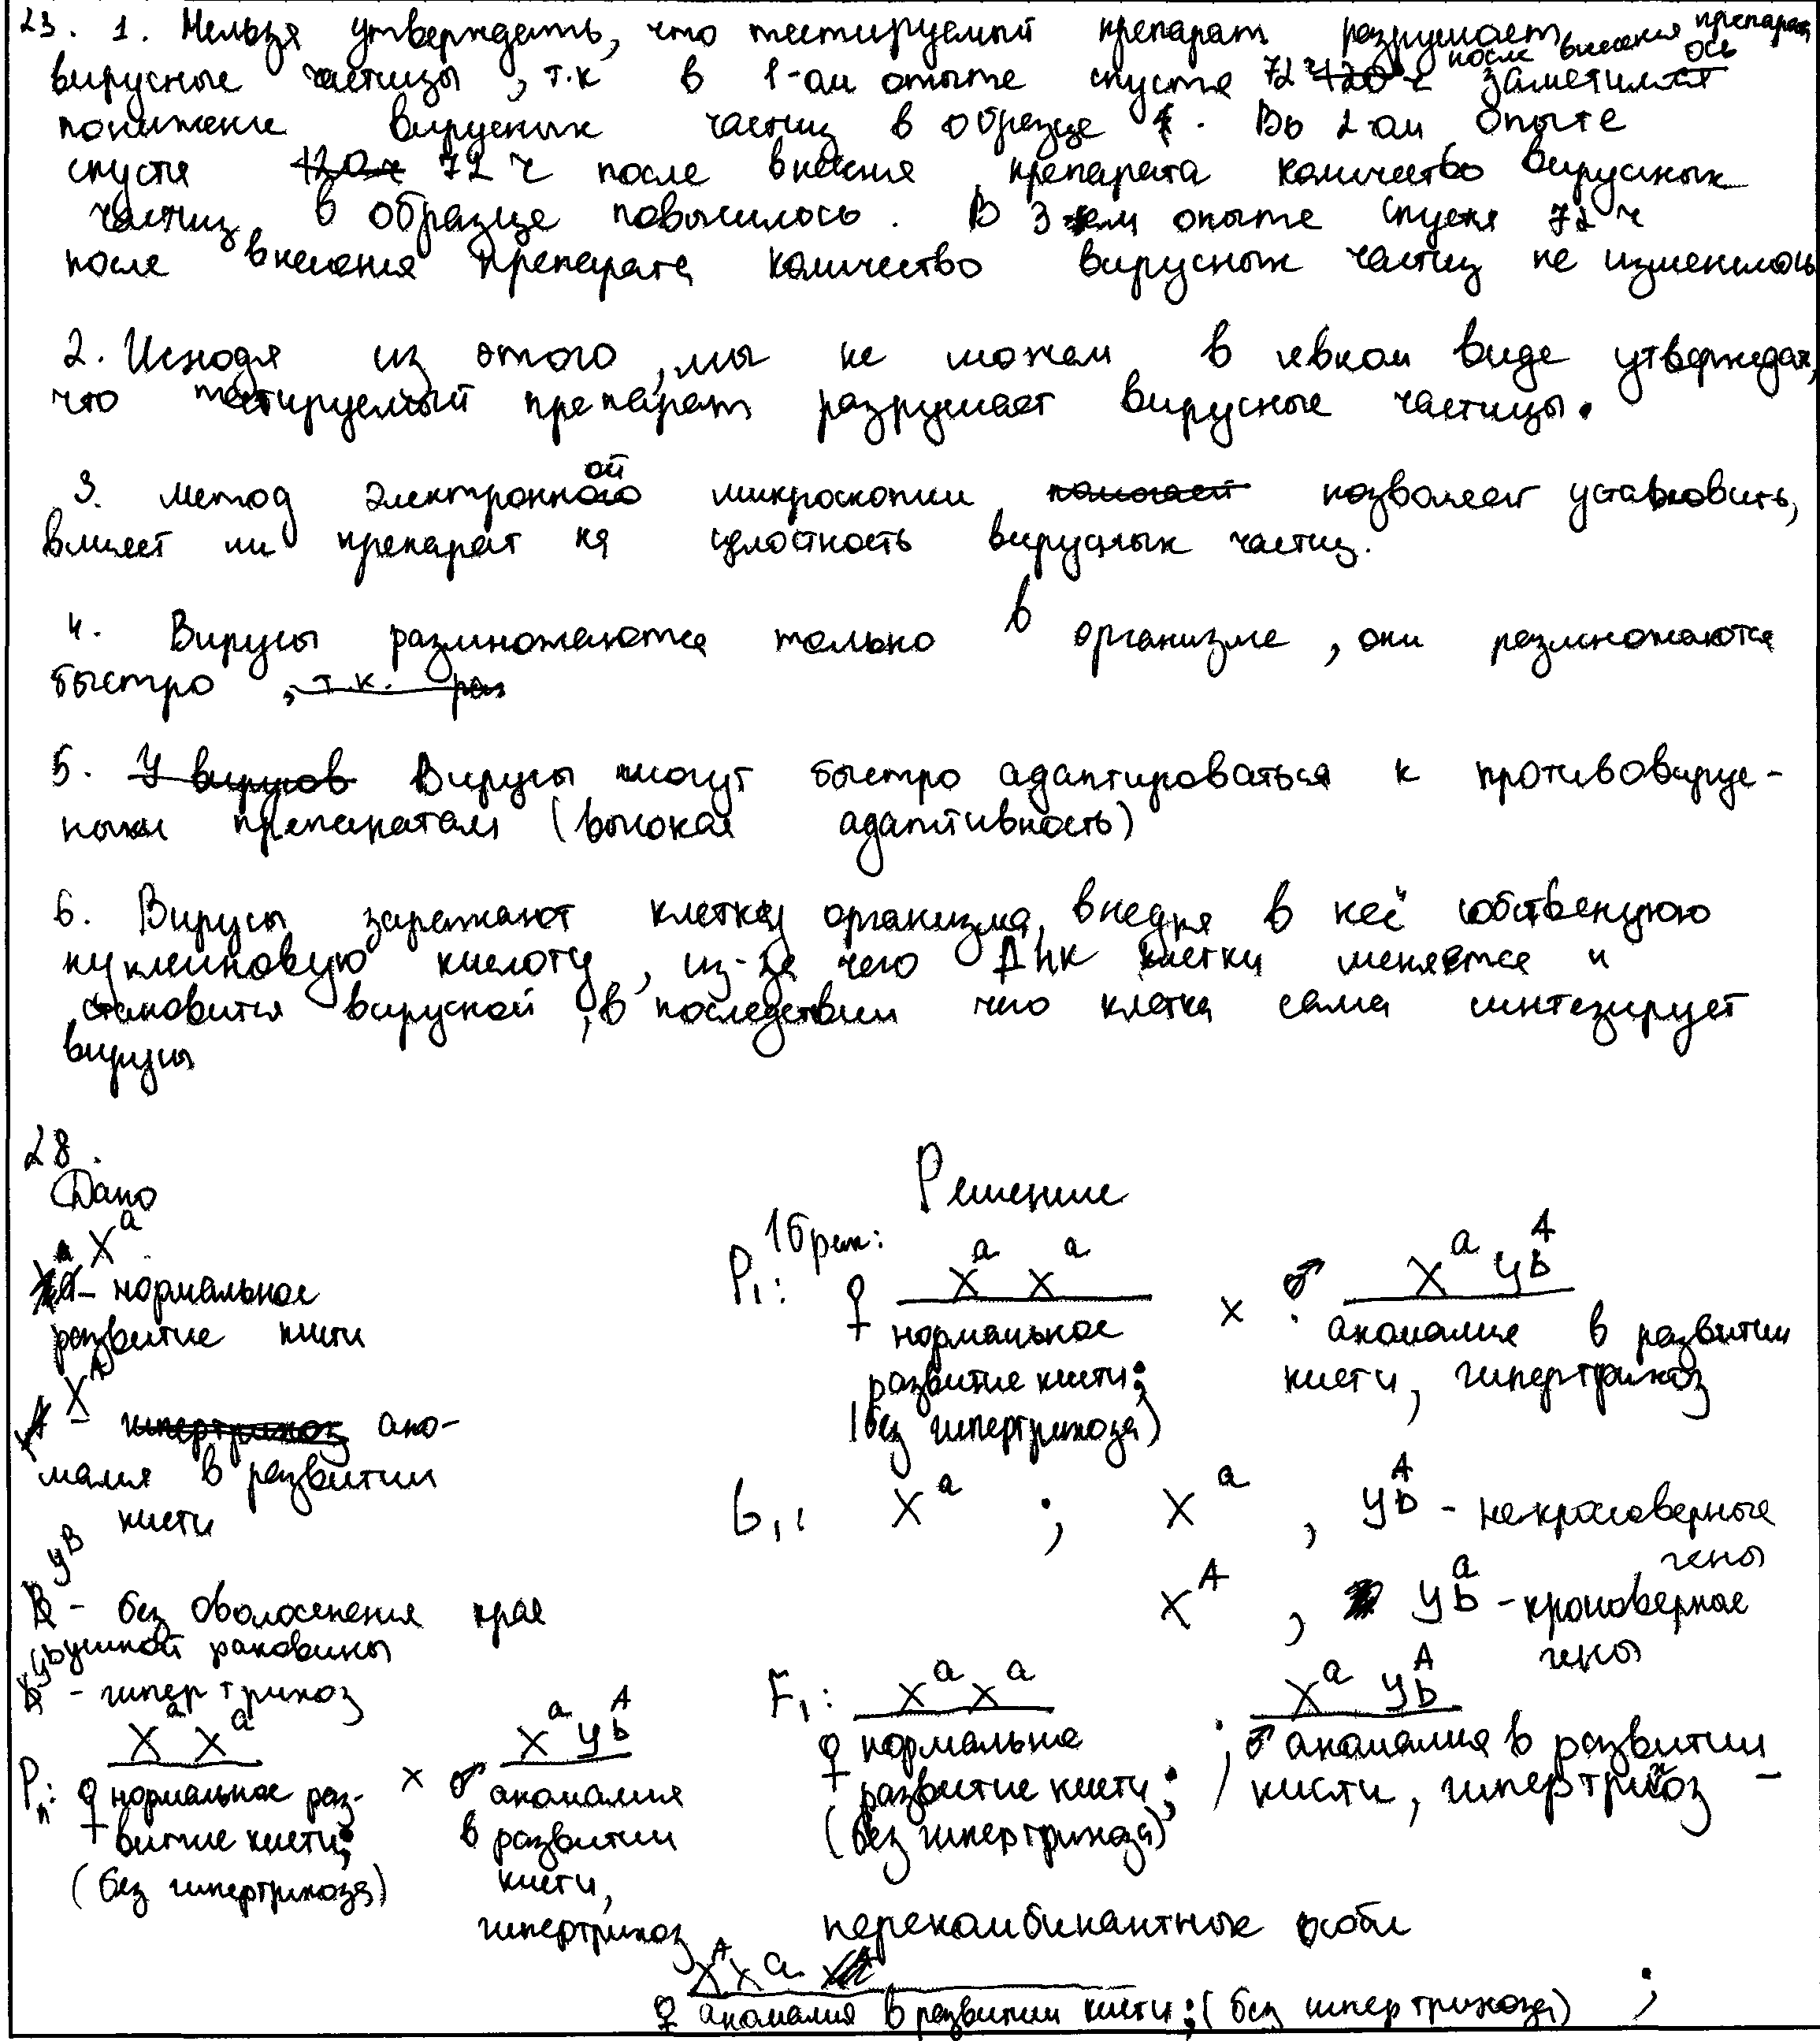 23. 1. Нельзя утверждать, что тестируемый препарат разрушает
вирусные частицы, т.к в 1-ом опыте спустя 72 ч после внесения препарата заметилось
понижение вирусных частиц в образце. Во 2-ом опыте
спустя 72 ч после внесения препарата количество вирусных
частиц в образце повысилось. В 3-ем опыте спустя 72 ч
после внесения препарата количество вирусных частиц не изменилось
2. Исходя из этого, мы не можем в явном виде утверждать,
что тестируемый препарат разрушает вирусные частицы.
3. Метод электронной микроскопии позволяет установить,
влияет ли препарат на целостность вирусных частиц.
4. Вирусы размножаются только в организме, они размножаются
быстро
5. Вирусы могут быстро адаптироваться к противовирус-
ным препаратам (высокая адаптивность)
6. Вирусы заражают клетку организма, внедря в неё собственную
нуклеиновую кислоту, из-за чего ДНК клетки меняется и
становится вирусной, в последствии чего клетка сама синтезирует
вирусы
28.
Дано
X^a
- нормальное
развитие кисти
X^A
- ано-
малия в развитии
кисти
y^B
- без оволосенения края
ушной раковины
y^b
- гипертрихоз
X^a X^a X^a y^A_b
P_n: ♀ нормальное раз- x ♂ аномалия
витие кисти; в развитии
(без гипертрихоза) кисти,
гипертрихоз
Решение
1 брак:
P1: ♀ X^a X^a x ♂ X^a y^A_b
нормальное аномалия в развитии
развитие кисти; кисти, гипертрихоз
(без гипертрихоза)
G1: X^a ; X^a , y^A_b - некроссоверные
гены
X^A , y^a_b - кроссоверное
гены
F1: X^a X^a ; X^a y^A_b
♀ нормальне ♂ аномалия в развитии
развитие кисти; кисти, гипертрихоз -
(без гипертрихоза)
перекомбинантные особи
X^A X^a
♀ аномалия в развитии кисти; (без гипертрихоза) ;